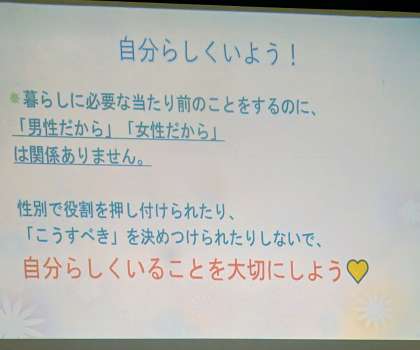 自分らしくいよう！
暮らしに必要な当たり前のことをするのに、
「男性だから」「女性だから」
は関係ありません。
性別で役割を押し付けられたり、
「こうすべき」を決めつけられたりしないで、
自分らしくいることを大切にしよう